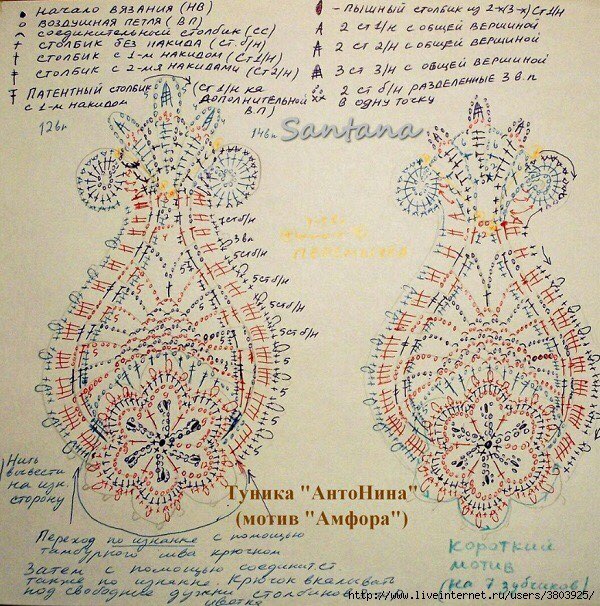 • начало вязания (НВ)
○ воздушная петля (ВП)
⌒ соединительный столбик (сс)
+ столбик без накида (ст.б/н)
† столбик с 1-м накидом (ст1/н)
столбик с 2-мя накидами (ст2/н)
патентный столбик (ст1/н из
с 1-м накидом дополнительной
В.П)
- пышный столбик из 2-х(3-х) ст1/н
2 ст 1/н с общей вершиной
2 ст 2/н с общей вершиной
3 ст 3/н с общей вершиной
2 ст б/н разделенные 3 в.п
в одну точку
Santana
7стб/н
3вп
5стб/н
5стб/н
5стб/н
Нить
вывести
на изн.
сторону
Туника "АнтоНина"
(мотив "Амфора")
Переход по изнанке с помощью
тамбурного шва крючком
Затем с помощью соединит.ст
также по изнанке. Крючок вкалывать
под свободные дужки столбиков
цветка
короткий
мотив
(на 7 зубчиков)
http://www.liveinternet.ru/users/3803925/